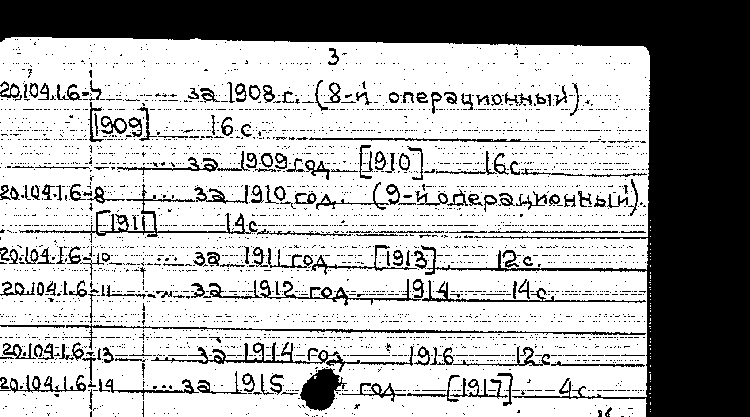 3
20.104.1.6-7 ... за 1908 г. (8-й операционный).
[1909]. 16 с.
... за 1909 год [1910]. 16 с.
20.104.1.6-8 ... за 1910 год. (9-й операционный).
[1911] 14 с.
20.104.1.6-10 ... за 1911 год [1913]. 12 с.
20.104.1.6-11 ... за 1912 год. 1914. 14 с.
20.104.1.6-13 ... за 1914 год. 1916. 12 с.
20.104.1.6-14 ... за 1915 год [1917]. 4 с.